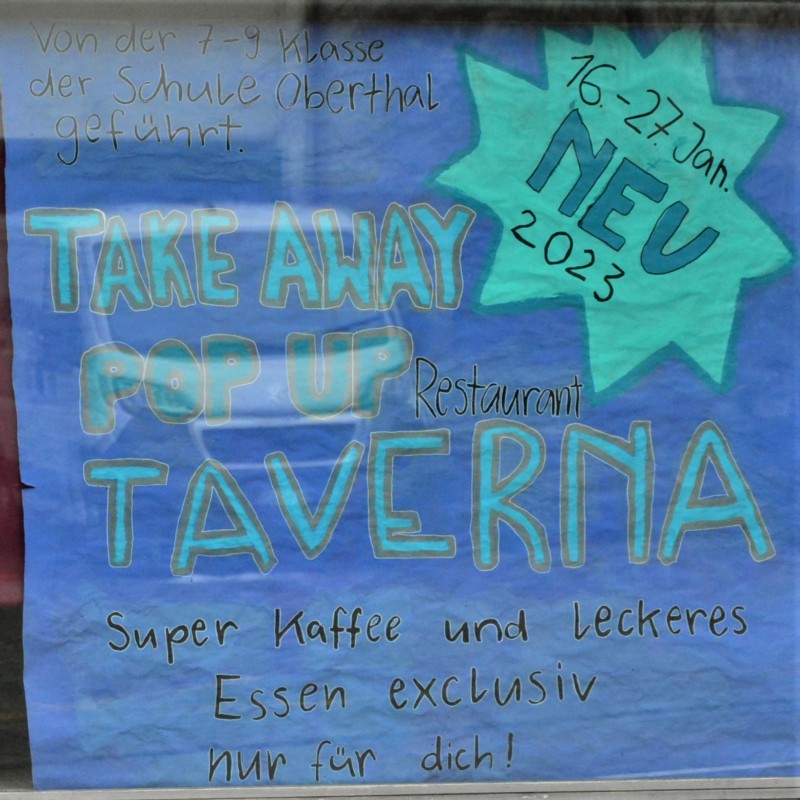 Von der 7-9 Klasse
der Schule Oberthal
geführt.
16.-27. Jan.
NEU
2023
TAKE AWAY
POP UP Restaurant
TAVERNA
Super Kaffee und leckeres
Essen exclusiv
nur für dich!